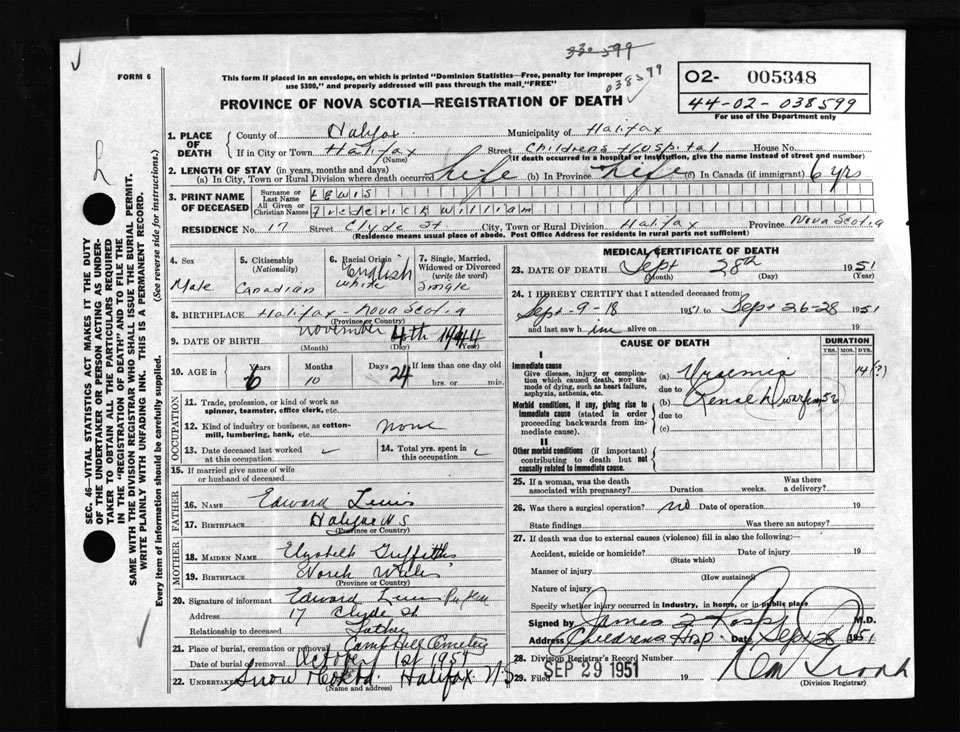 330599
038599
FORM 6
This form if placed in an envelope, on which is printed "Dominion Statistics—Free, penalty for improper
use $300," and properly addressed will pass through the mail, "FREE"
PROVINCE OF NOVA SCOTIA—REGISTRATION OF DEATH
O2- 005348
44-02-038599
For use of the Department only
1. PLACE OF DEATH
County of Halifax Municipality of Halifax
If in City or Town Halifax Street Childrens Hospital House No.
(Name) (If death occurred in a hospital or institution, give the name instead of street and number)
2. LENGTH OF STAY (in years, months and days)
(a) In City, Town or Rural Division where death occurred Life (b) In Province Life (c) In Canada (if immigrant) 6 yrs
3. PRINT NAME OF DECEASED
Surname or Last Name LEWIS
All Given or Christian Names Frederick William
RESIDENCE No. 17 Street Clyde St City, Town or Rural Division Halifax Province Nova Scotia
(Residence means usual place of abode. Post Office Address for residents in rural parts not sufficient)
4. Sex Male
5. Citizenship (Nationality) Canadian
6. Racial Origin English White
7. Single, Married, Widowed or Divorced (write the word) Single
8. BIRTHPLACE Halifax - Nova Scotia
(Province or Country)
9. DATE OF BIRTH November 4th 1944
(Month) (Day) (Year)
10. AGE in Years 6 Months 10 Days 24 If less than one day old
hrs. or min.
OCCUPATION
11. Trade, profession, or kind of work as
spinner, teamster, office clerk, etc.
12. Kind of industry or business, as cotton-
mill, lumbering, bank, etc. none
13. Date deceased last worked
at this occupation
14. Total yrs. spent in
this occupation
15. If married give name of wife
or husband of deceased
FATHER
16. NAME Edward Lewis
17. BIRTHPLACE Halifax N.S.
(Province or Country)
MOTHER
18. MAIDEN NAME Elizabeth Griffiths
19. BIRTHPLACE North Wales
(Province or Country)
20. Signature of informant Edward Lewis
Address 17 Clyde St.
Relationship to deceased Father
21. Place of burial, cremation or removal Camp Hill Cemetery
Date of burial or removal October 1st 1951
22. UNDERTAKER Snow & Co Ltd. Halifax N.S
(Name and address)
MEDICAL CERTIFICATE OF DEATH
23. DATE OF DEATH Sept 28th 1951
(Month) (Day) (Year)
24. I HEREBY CERTIFY that I attended deceased from:
Sept-9-18 1951 to Sept-26-28 1951
and last saw him alive on 19
CAUSE OF DEATH
DURATION
YRS. MOS. DYS.
I
Immediate cause
Give disease, injury or complication which caused death, NOT the mode of dying, such as heart failure, asphyxia, asthenia, etc.
(a) Uraemia 14(?)
due to
Morbid conditions, if any, giving rise to immediate cause (stated in order proceeding backwards from immediate cause).
(b) Renal Dwarfism
due to
(c)
II
Other morbid conditions (if important) contributing to death but not causally related to immediate cause.
25. If a woman, was the death Was there
associated with pregnancy? Duration weeks. a delivery?
26. Was there a surgical operation? no Date of operation 19
State findings Was there an autopsy?
27. If death was due to external causes (violence) fill in also the following:—
Accident, suicide or homicide? Date of injury 19
(State which)
Manner of injury
(How sustained)
Nature of injury
Specify whether injury occurred in industry, in home, or in public place
Signed by James F Ross M.D.
Address Childrens Hosp - Date Sept 28 1951
28. Division Registrar's Record Number
29. Filed SEP 29 1951 19
(Division Registrar)
SEC. 46—VITAL STATISTICS ACT MAKES IT THE DUTY
OF THE UNDERTAKER OR PERSON ACTING AS UNDER-
TAKER TO OBTAIN ALL THE PARTICULARS REQUIRED
IN THE "REGISTRATION OF DEATH" AND TO FILE THE
SAME WITH THE DIVISION REGISTRAR WHO SHALL ISSUE THE BURIAL PERMIT.
WRITE PLAINLY WITH UNFADING INK. THIS IS A PERMANENT RECORD.
Every item of information should be carefully supplied. (See reverse side for instructions.)